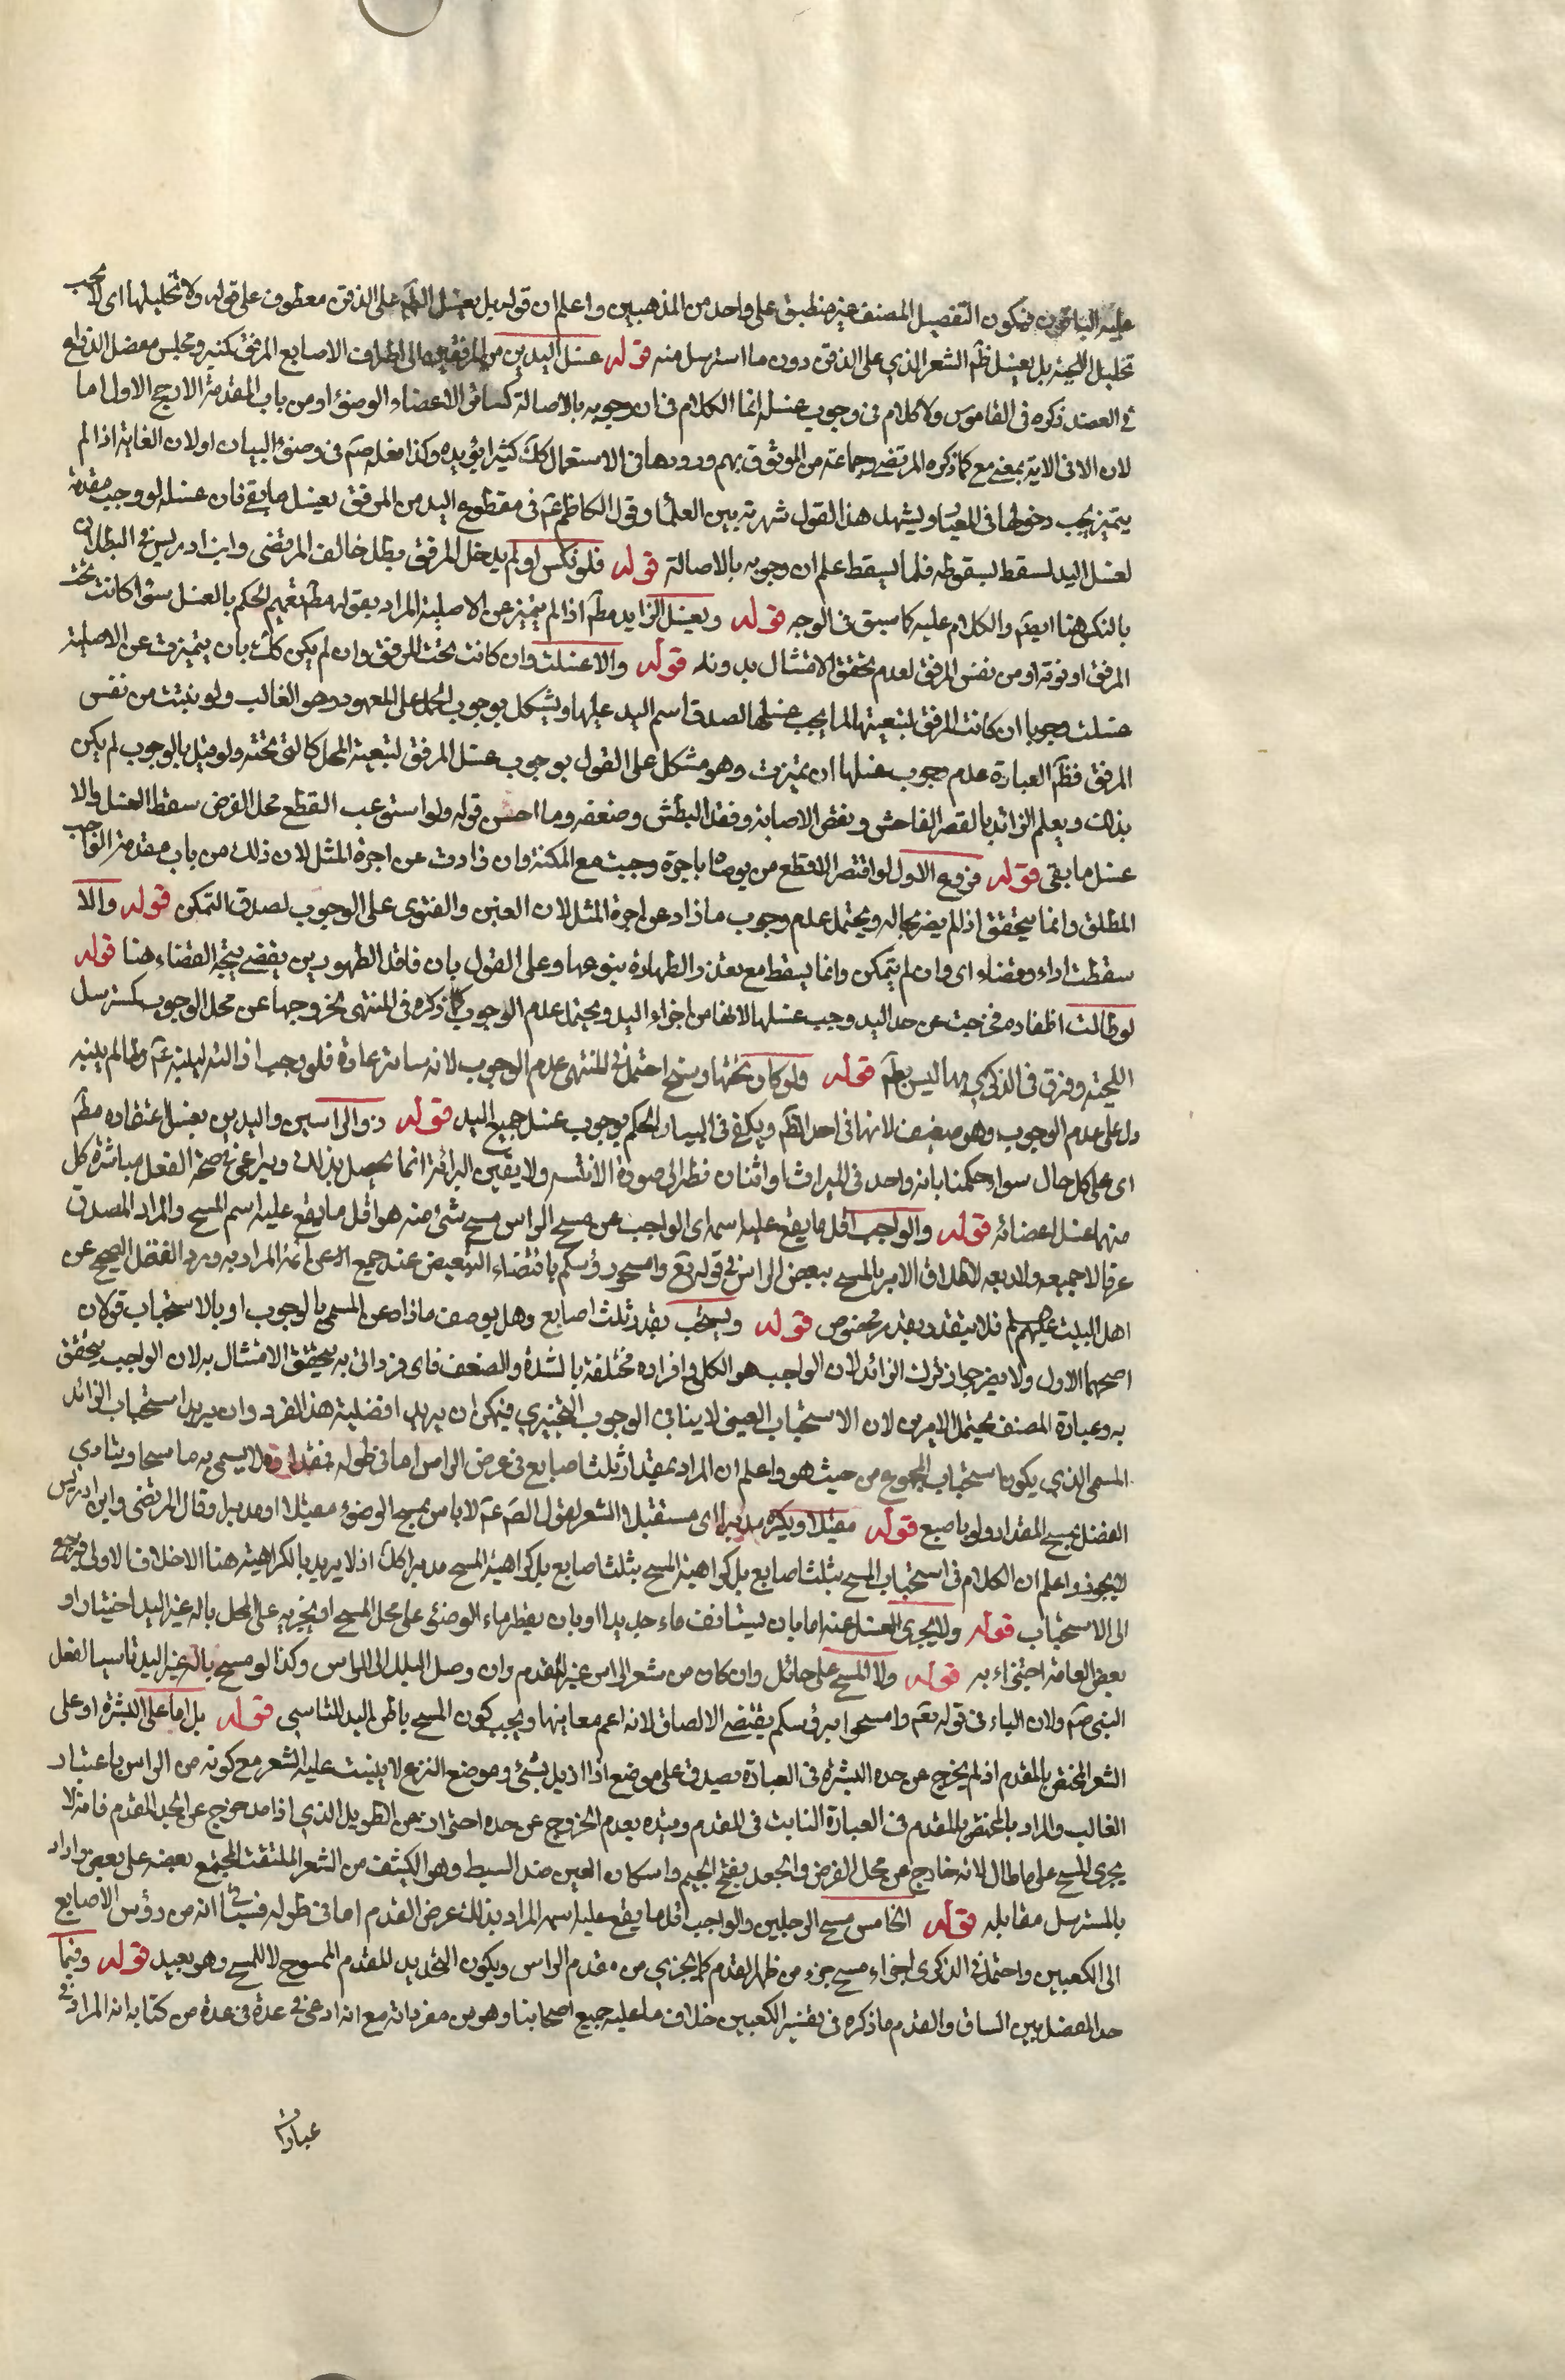 عليه الباقون فيكون التفصيل المصنف غير منطبق على واحد من المذهبين واعلم ان قوله بل يغسل الظم على الذقن معطوف على قوله ولا تخليلها اى لا يجب
تخليل اللحية بل يغسل ظم الشعر الذي على الذقن دون ما استرسل منه قوله غسل اليدين من المرفقين الى اطراف الاصابع المرفق كمنبر ومجلس مفصل الذراع
في العضد ذكره فى القاموس ولا كلام فى وجوب غسله انما الكلام فى ان وجوبه بالاصالة كسائر الاعضاء الوضوء او من باب المقدمة الارجح الاول اما
لان الا فى الاية بمعنى مع كما ذكره المرتضى وجماعة من الموثوق بهم وورودها فى الاستعمال كك كثيرا يؤيده وكذا فعله صم فى وضوء البيان او لان الغاية اذا لم
يتميز يجب دخولها فى المغيا ويشهد لهذا القول شهرته بين العلماء وقول الكاظم عم فى مقطوع اليد من المرفق يغسل ما بقى فان غسله لو وجب مقدمة
لغسل اليد لسقط بسقوطه فلما لم يسقط علم ان وجوبه بالاصالة قوله فلو نكس او لم يدخل المرفق بطل خالف المرتضى وابن ادريس فى البطلان
بالنكس هنا ايضم والكلام عليه كما سبق فى الوجه قوله ويغسل الزايد مطم اذا لم يتميز عن الاصلية المراد بقوله مطم تعميم الحكم بالغسل سواء كانت تحت
المرفق او فوقه او من نفس المرفق لعدم تحقق الامتثال بدونه قوله والا غسلت وان كانت تحت المرفق وان لم يكن كك بان يتميزت عن الاصلية
غسلت وجوبا ان كانت المرفق لتبعيتها لما يجب غسلها لصدق اسم اليد عليها ويشكل بوجوب الحمل على المعهود وهو الغالب ولو نبتت من نفس
المرفق فظم العبارة عدم وجوب غسلها ان تميزت وهو مشكل على القول بوجوب غسل المرفق لتبعية المحل كالتى تحته ولو قيل بالوجوب لم يكن
بذلك ويعلم الزائد بالقصر الفاحش ونقص الاصابع وفقد البطش وضعفه وما احسن قوله ولو استوعب القطع محل الفرض سقط الغسل والا
غسل ما بقى قوله فروع الاول لو افتقر الاقطع من يوضاه باجرة وجبت مع المكنة وان زادت عن اجرة المثل لان ذلك من باب مقدمة الواجب
المطلق وانما يتحقق اذا لم يضر بحاله ويحتمل عدم وجوب ما زاد عن اجرة المثل للان الغبن والفتوى على الوجوب لصدق التمكن قوله والا
سقطت اداء وقضاء اى وان لم يتمكن وانما يسقط مع تعذر والطهارة بنوعها وعلى القول بان فاقد الطهورين يقضى يتجه القضاء هنا قوله
لو طالت اظفاره فخرجت عن حد اليد وجب غسلها لانها من اجزاء اليد ويحتمل عدم الوجوب كما ذكره فى المنتهى لخروجها عن محل الوجوب كمسترسل
اللحية وفرق فى الذكرى بما ليس بظم قوله ولو كان تحتها وسخ احتمل فى المنتهى عدم الوجوب لانه ساتر عادة فلو وجب ازالته لبينه عم ولما لم يبينه
دل على عدم الوجوب وهو ضعيف لانها فى احد الظم ويكفى فى البيان الحكم بوجوب غسل جميع اليد قوله ذو الراسين واليدين يغسل اعضاءه مطم
اى على كل حال سواء حكمنا بانه واحد فى الميراث او اثنان نظرا الى صورة الاثنينية ولا يقين البرائة انما تحصل بذلك ويراعى فى صحة الفعل مباشرة كل
منهما غسل اعضائه قوله والواجب اقل ما يقع عليه اسمه اى الواجب عن مسح الراس مسح شئ منه هو اقل ما يقع عليه اسم المسح والمراد المصدق
عرفا لا جميعه ولا ربعه لاطلاق الامر بالمسح ببعض الراس فى قوله تع وامسحوا برؤسكم باقتضاء التبعيض عند جمع الا على انه المراد به وورد الفضل الصحيح عن
اهل البيت عليهم السلم فلا يتقدر بقدر مخصوص قوله ويستحب بقدر ثلث اصابع وهل يوصف ما زاد عن المسمى بالوجوب او بالاستحباب قولان
اصحهما الاول ولا يضر جواز ترك الزائد لان الواجب هو الكلى وافراده مختلفة بالشدة والضعف فاى فرد اتى به تحقق الامتثال به لان الواجب يتحقق
به وعبارة المصنف يحتمل الامرين لان الاستحباب العينى لا ينافى الوجوب التخييرى فيمكن ان يريد افضلية هذا الفرد وان يريد استحباب الزائد
المسمى الذي يكون استحباب المجموع من حيث هو واعلم ان المراد بمقدار ثلث اصابع فى عرض الراس اما فى طوله فمقدار ما يسمى به ماسحا ويتادي
الفضل بمسح المقدار ولو باصبع قوله مقبلا ويكره مدبرا اى مستقبلا الشعر لقول الصم عم لا باس بمسح الوضوء مقبلا او مدبرا وقال المرتضى وابن ادريس
لا يجوز واعلم ان الكلام فى استحباب المسح بثلث اصابع بل كراهية المسح بثلث اصابع بل كراهية المسح مدبرا كك اذ لا يريد بالكراهية هنا الا خلاف الاولى فيرجع
الى الاستحباب قوله ولا يجزى الغسل عنه اما بان يستانف ماء جديدا او بان يقطر ماء الوضوء على محل المسح او يجريه على المحل باله غير اليد اختيارا و
بعض العامة اجتزاء به قوله ولا المسح على حائل وان كان من شعر الراس غير المقدم وان وصل البلل الى الراس وكذا لو مسح بالة غير اليد تاسيا لفعل
النبى صم ولان الباء فى قوله تعم وامسحوا برؤسكم يقتضى الالصاق لانه اعم معانيها ويجب كون المسح باطن اليد للتاسي قوله بل اما على البشرة او على
الشعر المختص بالمقدم اذ لم يخرج عن حده البشرة فى العبارة يصدق على موضع اذا ازيل بشئ وموضع النزع لا ينبت عليه الشعر مع كونه من الراس باعتبار
الغالب والمراد بالمختص بالمقدم فى العبارة النابت فى المقدم وقيده بعدم الخروج عن حده احترازا من الطويل الذي اذا مد خرج عن الحد المقدم فانه لا
يجزى المسح على ما طال لانه خارج عن محل الفرض والجعد بفتح الجيم واسكان العين ضد السبط وهو الكثيف من الشعر الملتفت المجتمع بعضه على بعض واراد
بالمسترسل مقابله قوله الخامس مسح الرجلين والواجب اقل ما يقع عليه اسمه المراد بذلك عرض القدم اما فى طوله فسياتى انه من رؤس الاصابع
الى الكعبين واحتمل فى الذكرى اجزاء مسح جزء من ظهر القدم كما يجزي من مقدم الراس ويكون التحديد للمقدم الممسوح لا للمسح وهو بعيد قوله وهما
حد المفصل بين الساق والقدم ما ذكره فى تفسير الكعبين خلاف ما عليه جميع اصحابنا وهو من مفرداته مع انه ادعى فى عدة فى عدة من كتابه انه المراد فى
عبارات